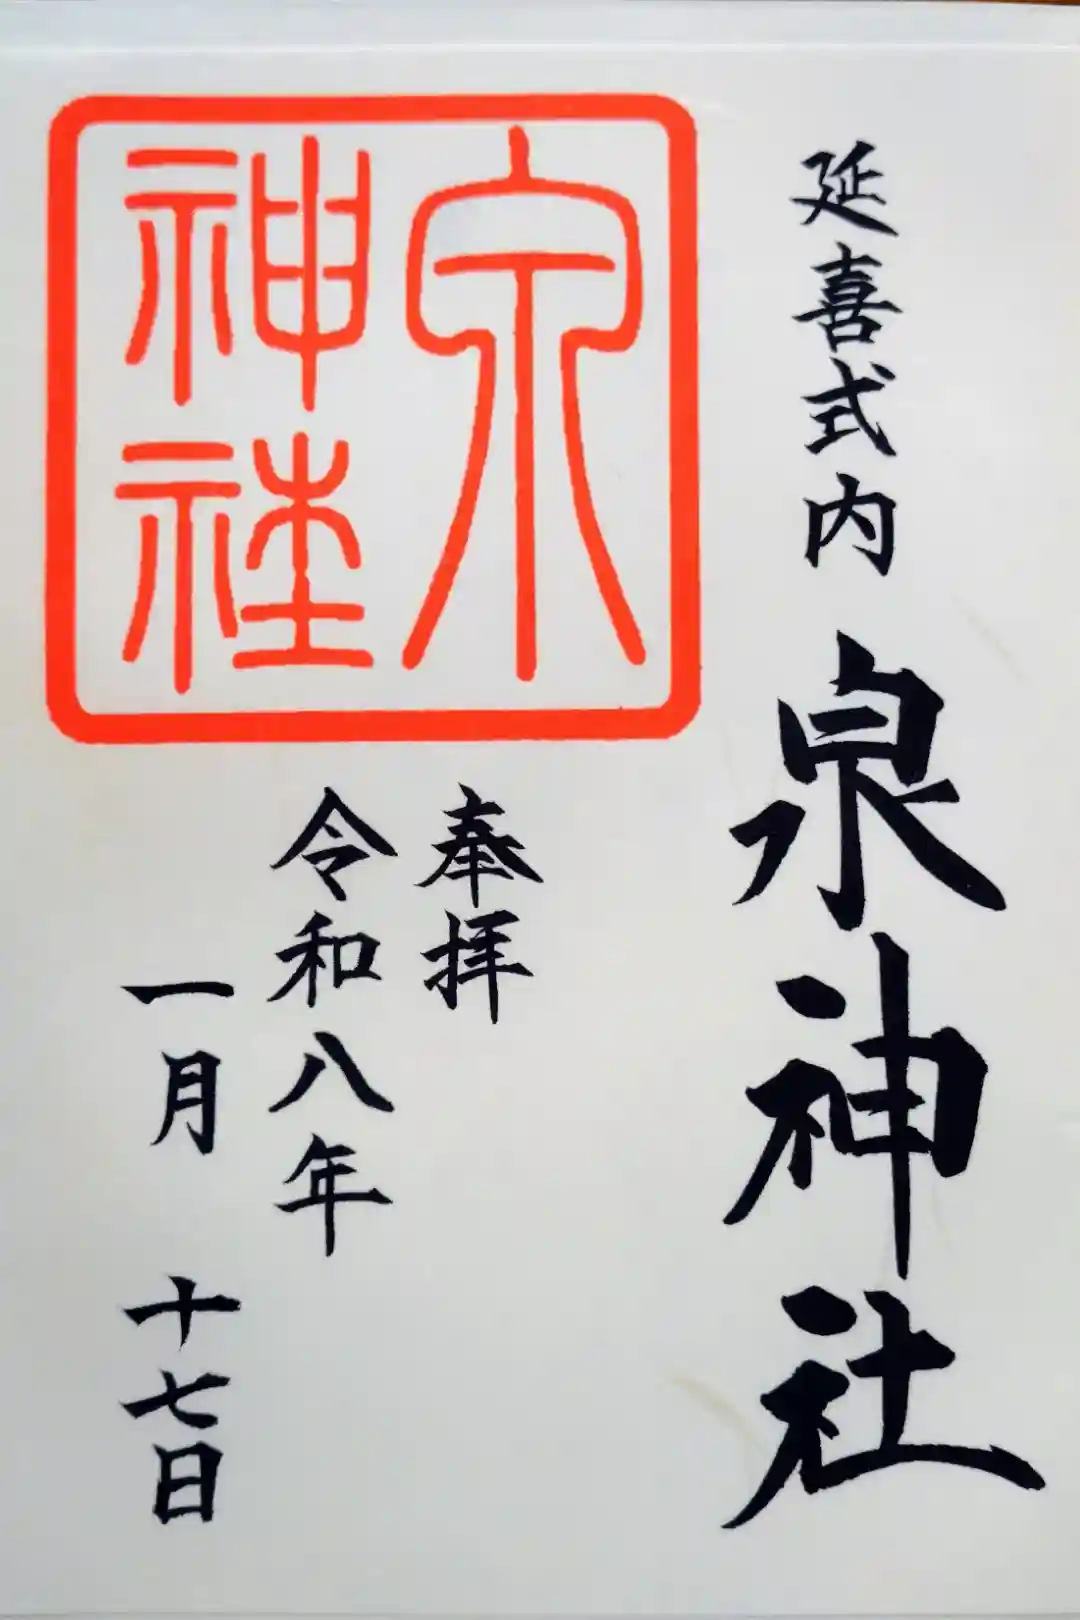 延喜式内 泉神社
奉拝
令和八年
一月 十七日
泉
神社